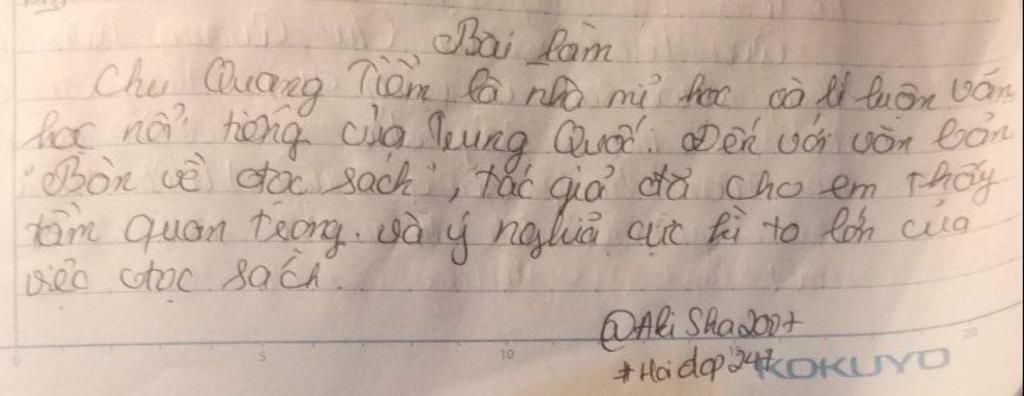 Bài làm
Chu Quang Tiềm là nhà mĩ học và lí luận văn
học nổi tiếng của Trung Quốc. Đến với văn bản
"Bàn về đọc sách", tác giả đã cho em thấy
tầm quan trọng và ý nghĩa cực kì to lớn của
việc đọc sách.
@AliSha2007
#Hoidap247
0 5 10 20
KOKUYO